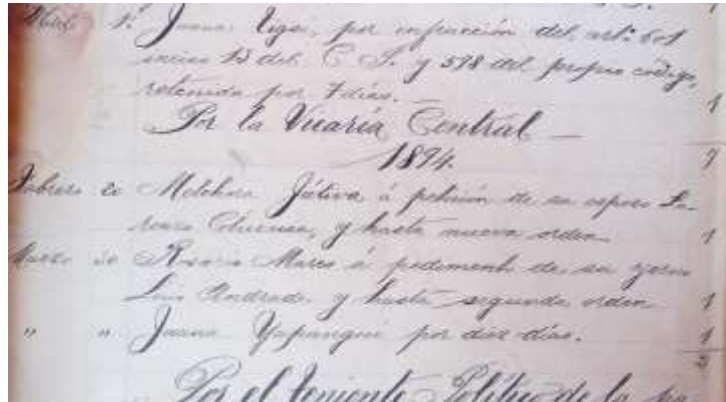 1º Juana Vega, por infracción del artº 601
inciso 13 del C P. y 598 del propio código,
retenida por 7 días. — 1
Por la Vicaría Central — 7
1894.
Febrero 20 Melchora Játiva á petición de su esposo
y hasta nueva orden 1
Marzo 20 Rosario á pedimento de su yerno
Luis Andrade y hasta segunda orden 1
" " Juana Yupangui por diez días. 1
3
Por el Teniente Político de la pa-